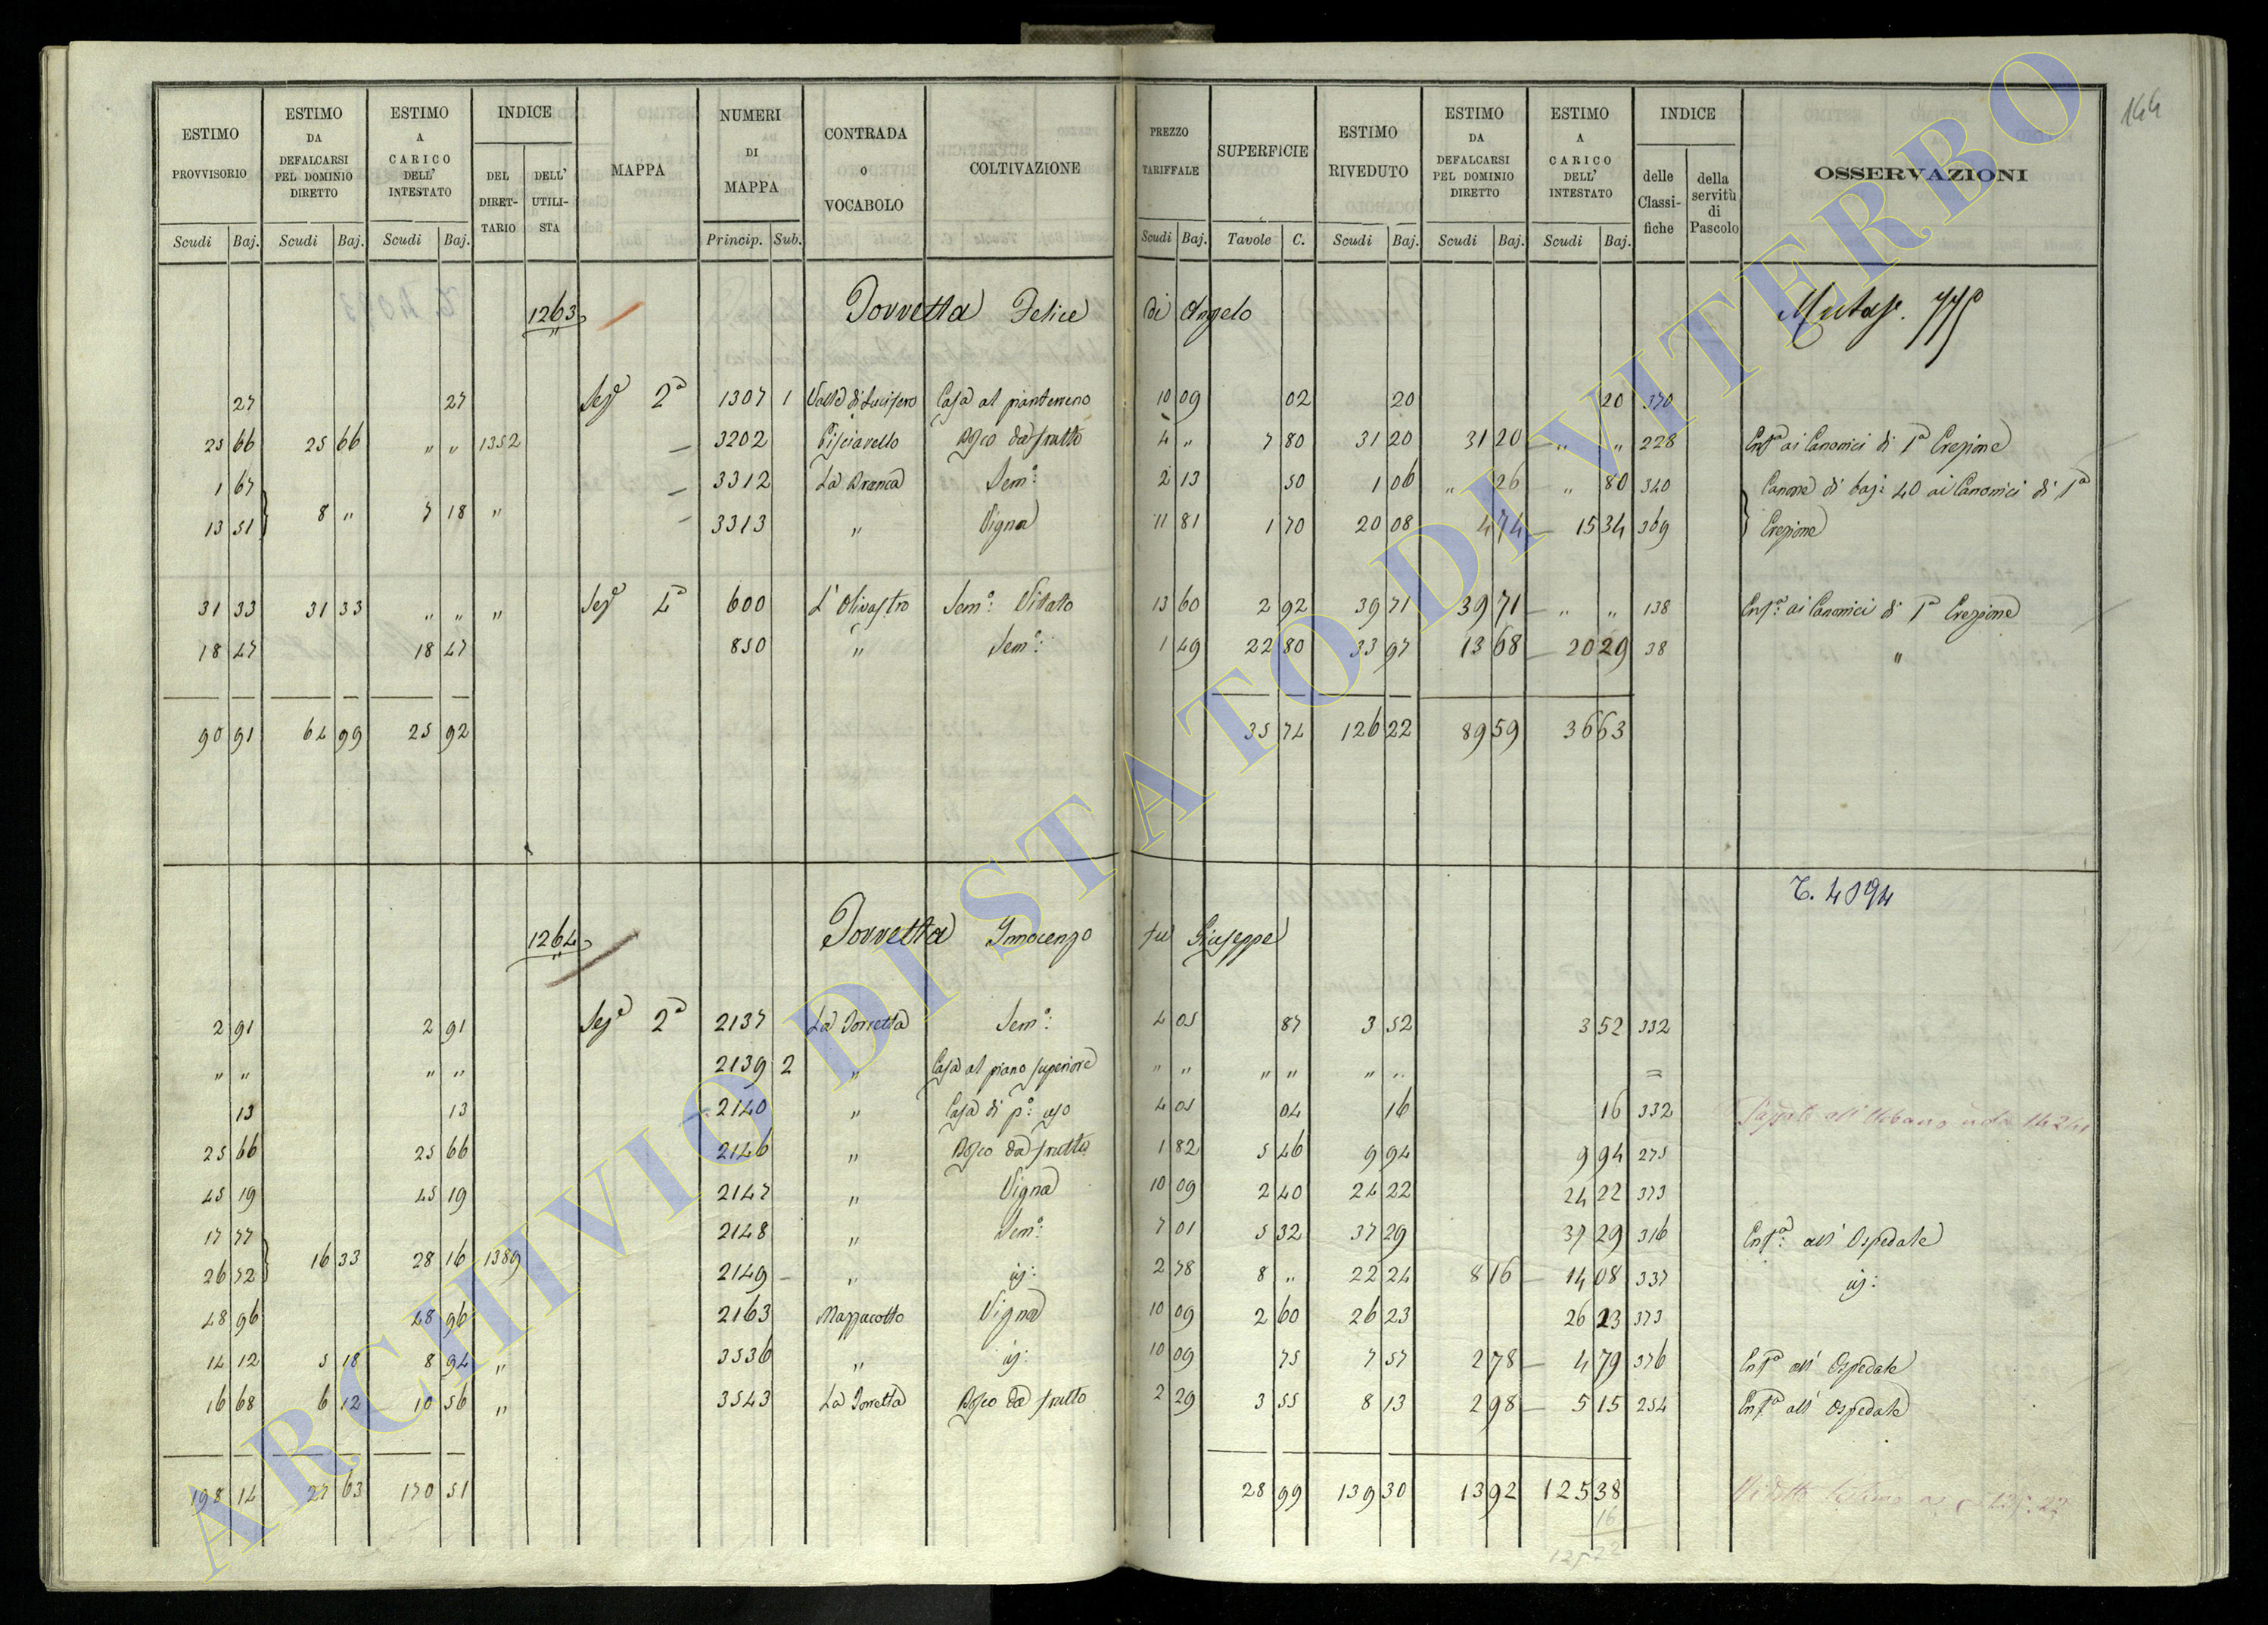 144
ESTIMO PROVVISORIO | ESTIMO DA DEFALCARSI PEL DOMINIO DIRETTO | ESTIMO A CARICO DELL' INTESTATO | INDICE | MAPPA | NUMERI DI MAPPA | CONTRADA O VOCABOLO | COLTIVAZIONE | PREZZO TARIFFALE | SUPERFICIE | ESTIMO RIVEDUTO | ESTIMO DA DEFALCARSI PEL DOMINIO DIRETTO | ESTIMO A CARICO DELL' INTESTATO | INDICE | OSSERVAZIONI
DEL DIRETTARIO | DELL' UTILISTA | delle Classifiche | della servitù di Pascolo
Scudi | Baj. | Scudi | Baj. | Scudi | Baj. | Princip. | Sub. | Scudi | Baj. | Tavole | C. | Scudi | Baj. | Scudi | Baj. | Scudi | Baj.
1263 Torretta Felice di Angelo
27 | 27 | Sez.e 2a | 1307 | 1 | Valle di Lucifero | Casa al pianterreno | 10 09 | 02 | 20 | 20 | 370
25 66 | 25 66 | " " | 1352 | 3202 | Pisciarello | Bosco da frutto | 4 " | 7 80 | 31 20 | 31 20 | " " | 228 | Enf.a ai Canonici di 1a Erezione
1 67 | 3312 | La Branca | Sem.o | 2 13 | 50 | 1 06 | " 26 | " 80 | 340 | Canone di baj: 40 ai Canonici di 1a
13 51 | 8 " | 7 18 | " | 3313 | " | Vigna | 11 81 | 1 70 | 20 08 | 4 74 | 15 34 | 369 | Erezione
31 33 | 31 33 | " " | " | Sez.e 4a | 600 | L'Olivastro | Sem.o Vitato | 13 60 | 2 92 | 39 71 | 39 71 | " " | 138 | Enf.a ai Canonici di 1a Erezione
18 47 | 18 47 | 850 | " | Sem.o | 1 49 | 22 80 | 33 97 | 13 68 | 20 29 | 38 | "
90 91 | 64 99 | 25 92 | 35 74 | 126 22 | 89 59 | 36 63
T. 4094
1264 Torretta Innocenzo fu Giuseppe
2 91 | 2 91 | Sez.e 2a | 2137 | La Torretta | Sem.o | 4 05 | 87 | 3 52 | 3 52 | 332
" " | " " | 2139 | 2 | " | Casa al piano superiore | " " | " " | " " | =
13 | 13 | 2140 | " | Casa di p.o uso | 4 05 | 04 | 16 | 16 | 332
25 66 | 25 66 | 2146 | " | Bosco da frutto | 1 82 | 5 46 | 9 94 | 9 94 | 275
45 19 | 45 19 | 2147 | " | Vigna | 10 09 | 2 40 | 24 22 | 24 22 | 373
17 77 | 2148 | " | Sem.o | 7 01 | 5 32 | 37 29 | 37 29 | 316 | Enf.a all'Ospedale
26 72 | 16 33 | 28 16 | 1389 | 2149 | " | id: | 2 78 | 8 " | 22 24 | 8 16 | 14 08 | 337 | id:
48 96 | 48 96 | 2163 | Mazzacotto | Vigna | 10 09 | 2 60 | 26 23 | 26 23 | 373
14 12 | 5 18 | 8 94 | " | 3536 | " | id: | 10 09 | 75 | 7 57 | 2 78 | 4 79 | 376 | Enf.a all'Ospedale
16 68 | 6 12 | 10 56 | " | 3543 | La Torretta | Bosco da frutto | 2 29 | 3 55 | 8 13 | 2 98 | 5 15 | 254 | Enf.a all'Ospedale
198 14 | 27 63 | 170 51 | 28 99 | 139 30 | 13 92 | 125 38
16
125 22
ARCHIVIO DI STATO DI VITERBO